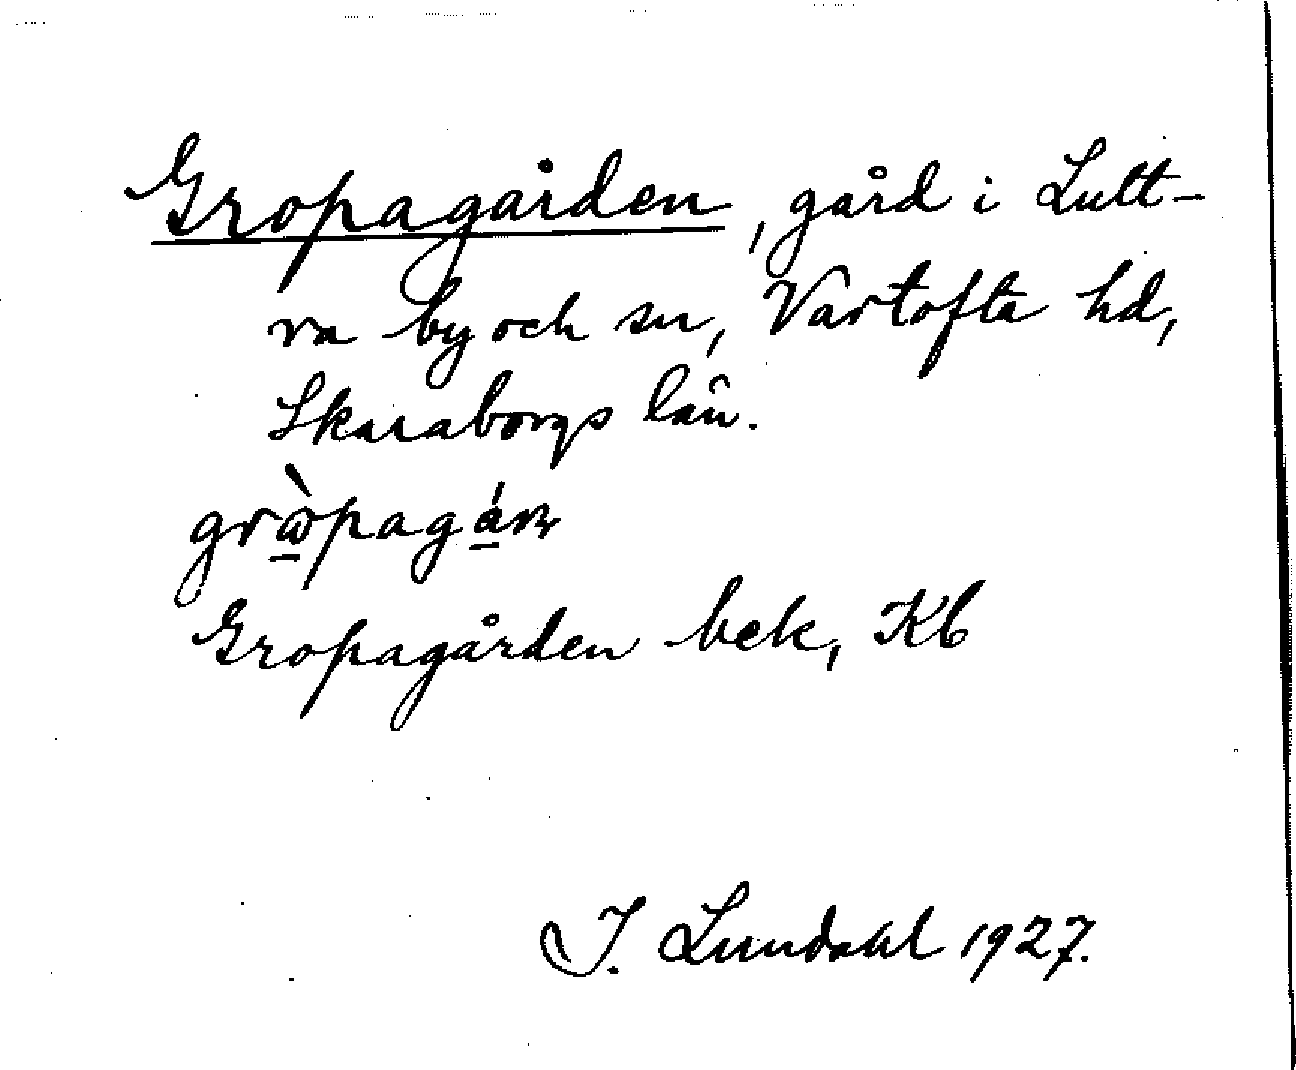 Gropagården, gård i Lutt-
ra by och sn, Vartofta hd,
Skaraborgs län.
grò̱pagá̱ɳ
Gropagården bek, Kb
I. Lundahl 1927.